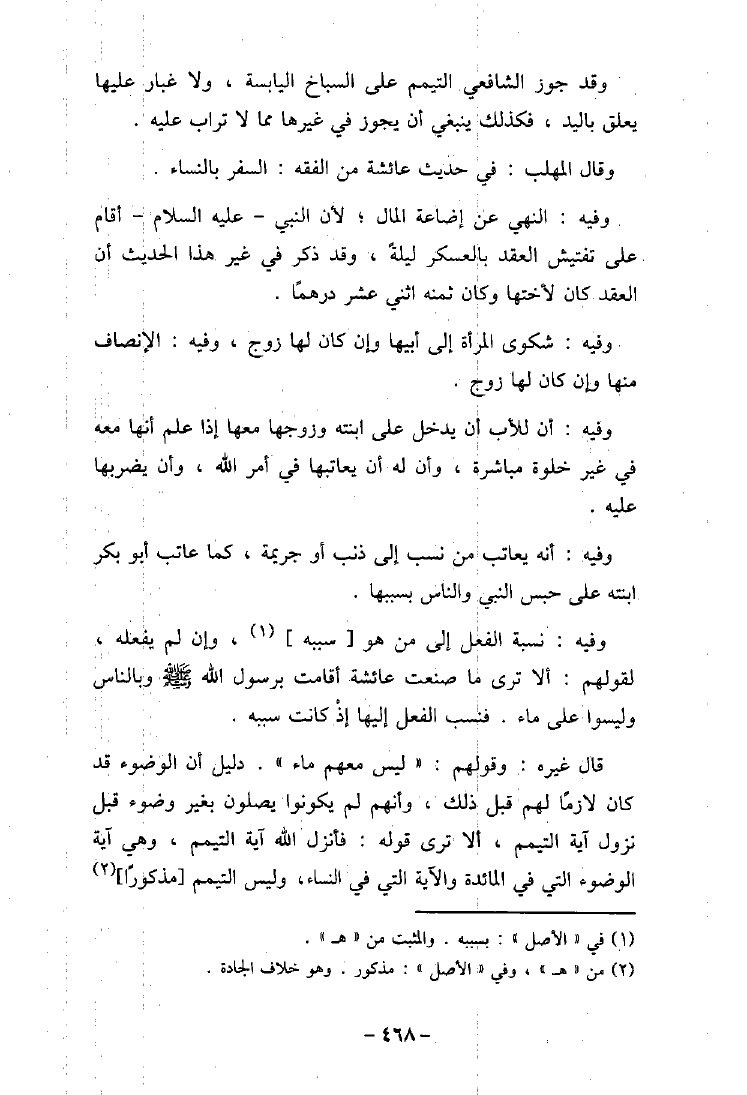 وقد جوز الشافعي التيمم على السباخ اليابسة ، ولا غبار عليها
يعلق باليد ، فكذلك ينبغي أن يجوز في غيرها مما لا تراب عليه .
وقال المهلب : في حديث عائشة من الفقه : السفر بالنساء .
وفيه : النهي عن إضاعة المال ؛ لأن النبي – عليه السلام – أقام
على تفتيش العقد بالعسكر ليلةً ، وقد ذكر في غير هذا الحديث أن
العقد كان لأختها وكان ثمنه اثني عشر درهمًا .
وفيه : شكوى المرأة إلى أبيها وإن كان لها زوج ، وفيه : الإنصاف
منها وإن كان لها زوج .
وفيه : أن للأب أن يدخل على ابنته وزوجها معها إذا علم أنها معه
في غير خلوة مباشرة ، وأن له أن يعاتبها في أمر الله ، وأن يضربها
عليه .
وفيه : أنه يعاتب من نسب إلى ذنب أو جريمة ، كما عاتب أبو بكر
ابنته على حبس النبي والناس بسببها .
وفيه : نسبة الفعل إلى من هو [ سببه ] (١) ، وإن لم يفعله ،
لقولهم : ألا ترى ما صنعت عائشة أقامت برسول الله ﷺ وبالناس
وليسوا على ماء . فنسب الفعل إليها إذْ كانت سببه .
قال غيره : وقولهم : « ليس معهم ماء » . دليل أن الوضوء قد
كان لازمًا لهم قبل ذلك ، وأنهم لم يكونوا يصلون بغير وضوء قبل
نزول آية التيمم ، ألا ترى قوله : فأنزل الله آية التيمم ، وهي آية
الوضوء التي في المائدة والآية التي في النساء، وليس التيمم [مذكورًا](٢)
(١) في « الأصل » : بسببه . والمثبت من « هـ » .
(٢) من « هـ » ، وفي « الأصل » : مذكور . وهو خلاف الجادة .
– ٤٦٨ –